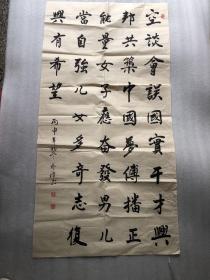 空談會誤國實干才興
邦共築中國夢傳播正
能量女子應奮發男兒
當自強兒女多奇志復
興有希望
丙申年